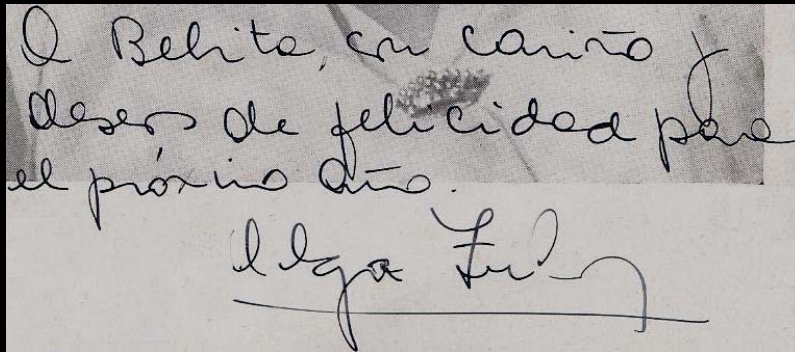 A Belita, con cariño y
deseos de felicidad para
el próximo año.
Olga